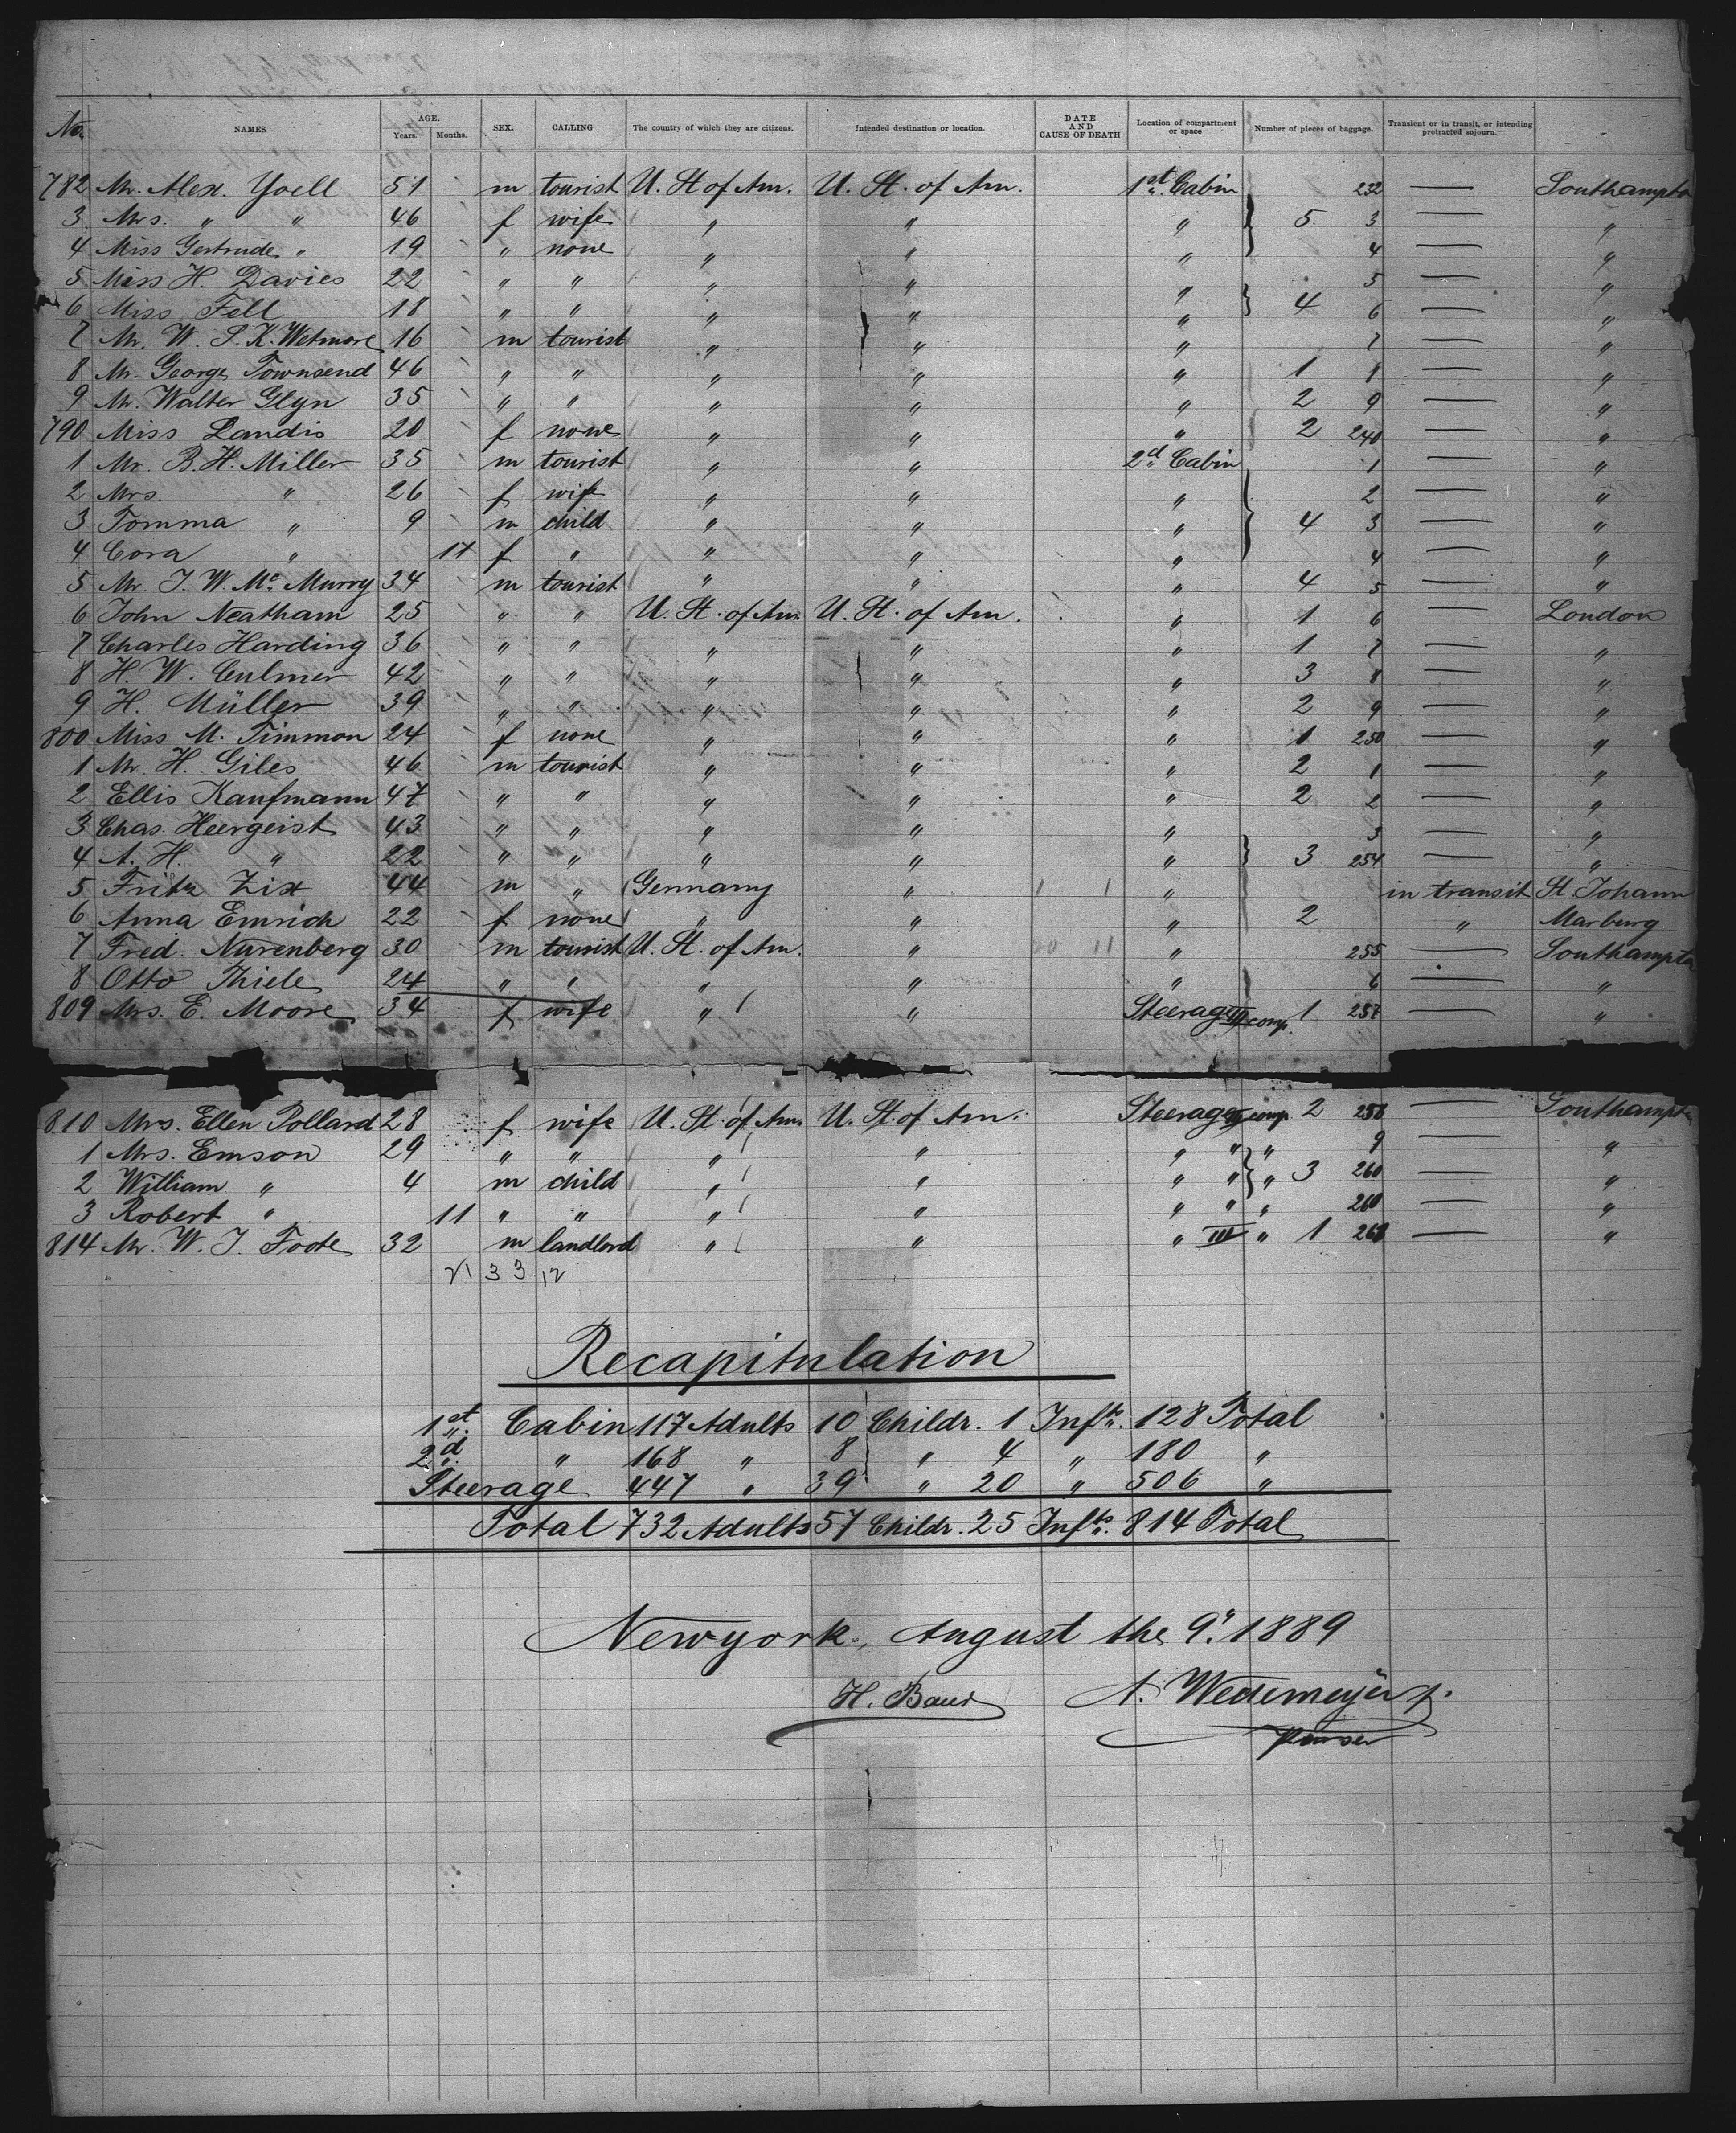 No. NAMES AGE. Years. Months. SEX. CALLING The country of which they are citizens. Intended destination or location. DATE AND CAUSE OF DEATH Location of compartment or space Number of pieces of baggage. Transient or in transit, or intending protracted sojourn.
782 Mr. Alex. Yoell 51 m tourist U. St of Am. U. St. of Am. 1st Cabin 232 — Southampton
3 Mrs. " " 46 f wife " " " 5 3 — "
4 Miss Gertrude " 19 " none " " " 4 — "
5 Miss H. Davies 22 " " " " " 5 — "
6 Miss Fell 18 " " " " " 4 6 — "
7 Mr. W. S. K. Wetmore 16 m tourist " " " 7 — "
8 Mr. George Townsend 46 " " " " " 1 8 — "
9 Mr. Walter Glyn 35 " " " " " 2 9 — "
790 Miss Landis 20 f none " " " 2 240 — "
1 Mr. B. H. Miller 35 m tourist " " 2d Cabin 1 — "
2 Mrs. " 26 f wife " " " 2 — "
3 Tomma " 9 m child " " " 4 3 — "
4 Cora " 11 f " " " " 4 — "
5 Mr. J. W. Mc. Murry 34 m tourist " " " 4 5 — "
6 John Neatham 25 " " U. St. of Am. U. St. of Am. " 1 6 — London
7 Charles Harding 36 " " " " " 1 7 — "
8 H. W. Culmer 42 " " " " " 3 8 — "
9 H. Müller 39 " " " " " 2 9 — "
800 Miss M. Timmon 24 f none " " " 1 250 — "
1 Mr. H. Giles 46 m tourist " " " 2 1 — "
2 Ellis Kaufmann 47 " " " " " 2 2 — "
3 Chas. Heergeist 43 " " " " " 3 — "
4 A. H. " 22 " " " " " 3 254 — "
5 Fritz Zix 44 m " Germany " 1 1 " in transit St Johann
6 Anna Emrich 22 f none " " " 2 " Marburg
7 Fred. Nurenberg 30 m tourist U. St. of Am. " 20 11 " 255 — Southampton
8 Otto Thiele 24 " " " " " 6 — "
809 Mrs. E. Moore 34 f wife " " Steerage comp. 1 257 — "
810 Mrs. Ellen Pollard 28 f wife U. St. of Am. U. St. of Am. Steerage comp. 2 258 — Southampton
1 Mrs. Emson 29 " " " " " " " 9 — "
2 William " 4 m child " " " " " 3 260 — "
3 Robert " 11 " " " " " " " 260 — "
814 Mr. W. J. Foote 32 m landlord " " " III " 1 261 — "
21 33 12
Recapitulation
1st. Cabin 117 Adults 10 Childr. 1 Inft. 128 Total
2d. " 168 " 8 " 4 " 180 "
Steerage 447 " 39 " 20 " 506 "
Total 732 Adults 57 Childr. 25 Infts. 814 Total
Newyork, August the 9. 1889
H. Baur A. Wedemeyer
Purser